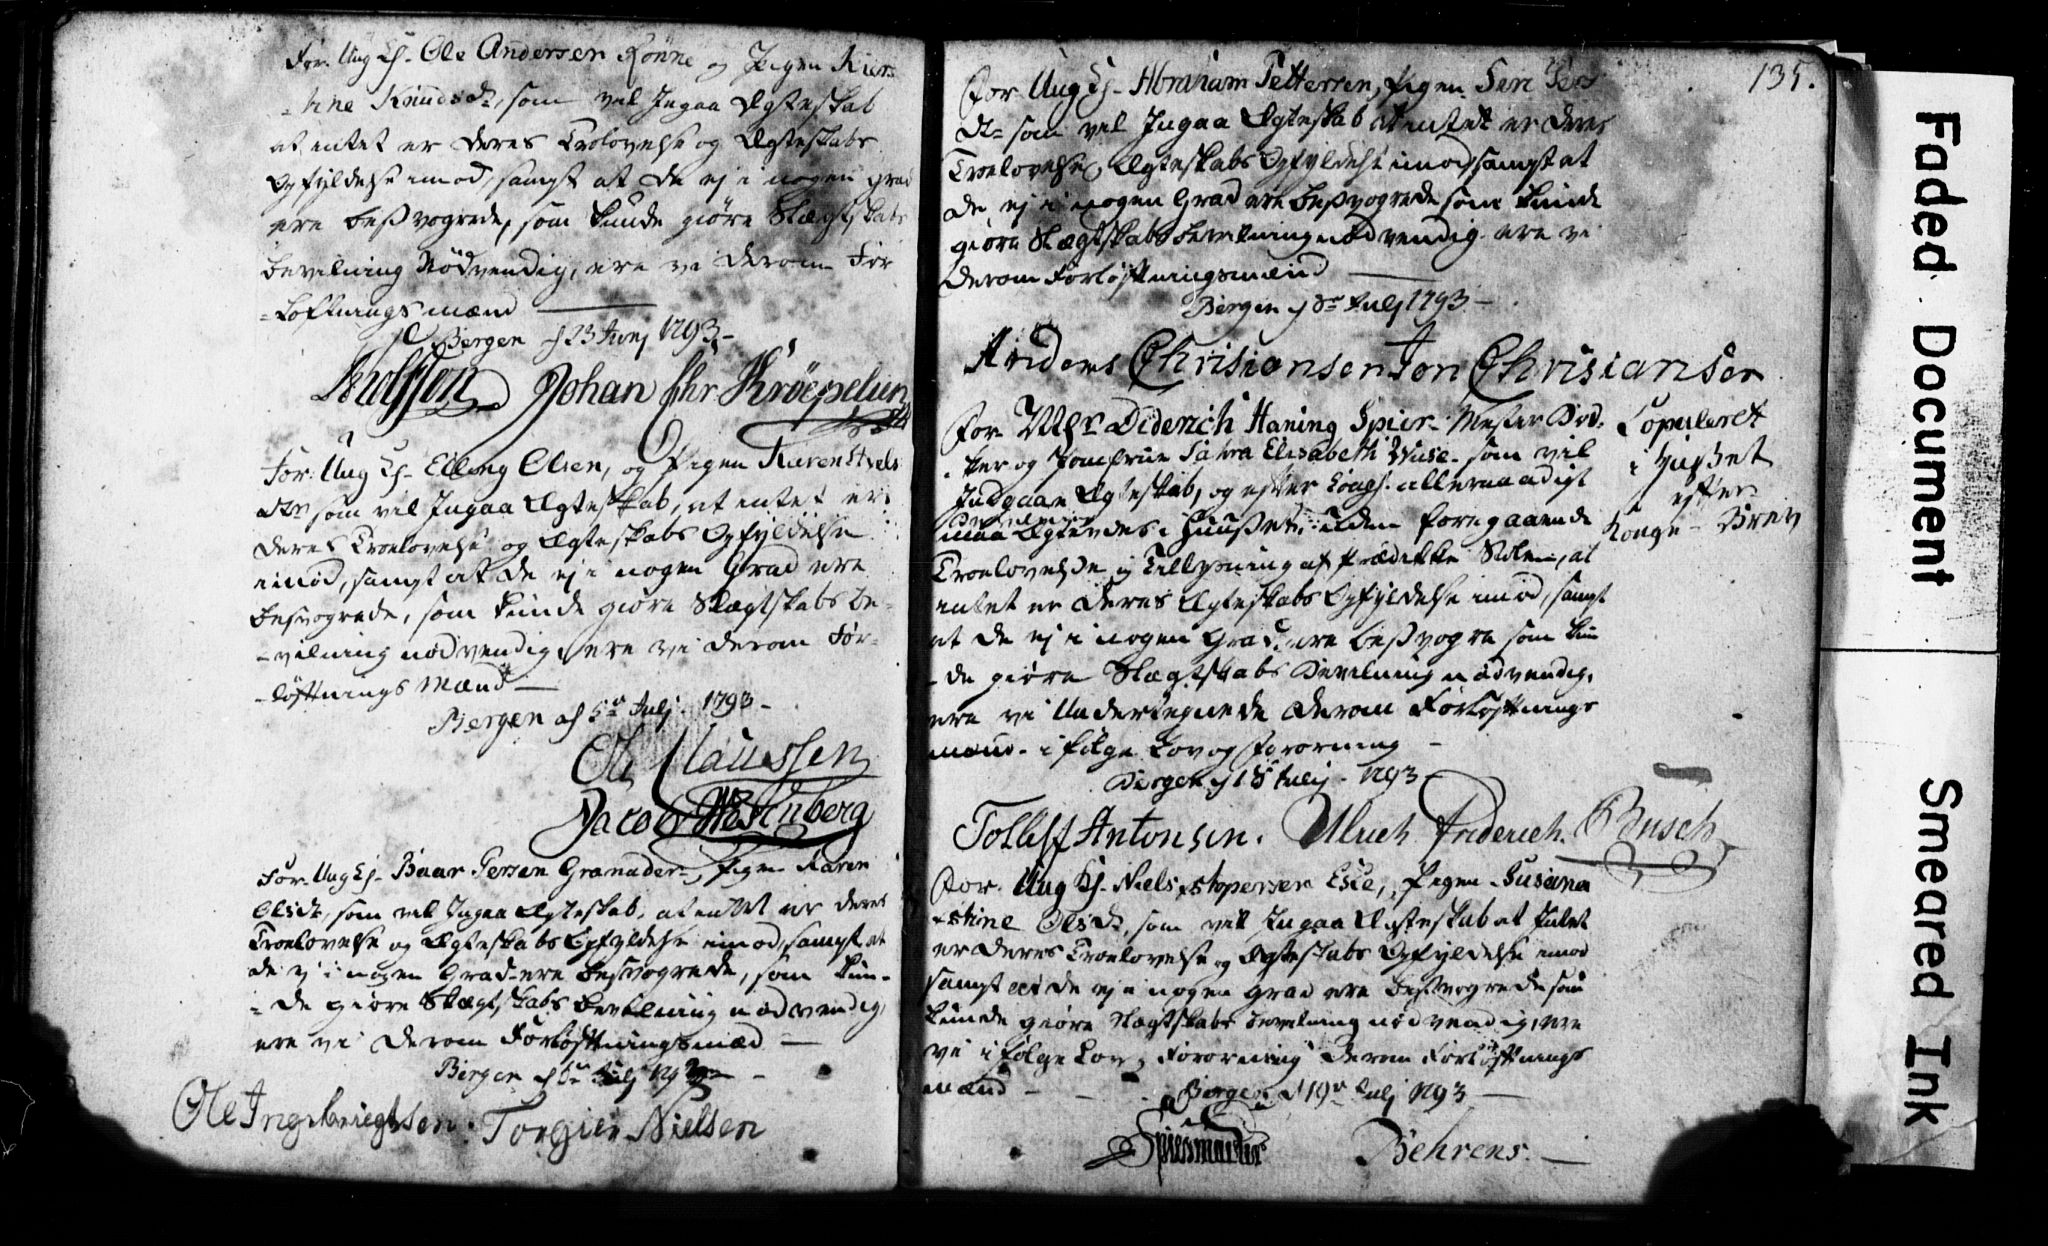 For Ung K. Ole Andersen Rönne og Pigen Kiers
-tine Knudsdr, som vil Indgaa Ægteskab
at intet er deres Trolovelse og Ægteskabs
Opfyldelse imod, samt at de ej i nogen grad
ere besvogrede, som kunde giöre Slægtskabs
bevilning Nödvendig, ere vi derom For
-loftnings mænd
Bergen d 23 Junj 1793 -
Johan Chr Kröepelien
For Ung K. Elling Olsen, og Pigen Karen
dtr som vil Ingaa Ægteskab, at intet er
deres Troelovelse og Ægteskabs Opfyldelse
imod, samt at de ej i nogen Grad ere
besvogrede, som kunde giöre Slægtskabs be-
-vilning nödvendig ere vi derom For-
-löftnings Mænd
Bergen d 5te Julj 1793 -
Ole Claussen
Jacob Westenberg
For Ung K. Baar Persen Granader, Pigen Karen
Olsdr, som vil Ingaa Ægteskab, at intet er deres
Troelovelse og Ægteskabs Opfyldelse imod, samt at
de ej i nogen Grad ere besvogrede, som kun-
-de giöre Slægtskabs bevilning nödvendig,
ere vi derom Forlöftningsmæd
Bergen d Julj 1793
Ole Ingebriegtsen. Torgier Nielsen
135.
For Ung K. Abraham Pettersen, Pigen Siri Pers
dr som vil Ingaa Ægteskab at intet er deres
Troelovelse, Ægteskabs Opfyldelse imod, samt at
de ej i nogen Grad ere besvogrede som kunde
giöre Slægtskabs bevilning nödvendig. ere vi
derom Forlöftningsmænd
Bergen d Julj 1793 -
Anders Chrisiansen Jon Chrisiansen
For Diderich Haning Spier Mester
og Jomfrue Sahra Elisabeth Wiise som vil
Indgaae Ægteskab, og efter Kongl. allernaadigst
maa Ægtevies i Huuset, uden foregaaende
Troelovelse og Tillysning af Prædikke Stolen, at
intet er deres Ægteskabs Opfyldelse imod, samt
at de ej i nogen Grad ere besvogre som kun
-de giöre Slægtskabs Bevilning nödvendig,
ere vi Undertegnede derom Forlöftnings
mænd - i fölge Lov og Forordning -
Bergen d 18 Julij 1793 -
Copuleret
i Huset
efter
Konge - Brev
Tollef Antonsen. Ulrich Friderich Busch
For Ung K. Niels Pigen Susana
Olsdr, som vil Ingaa Ægteskab at Intet
er deres Troelovelse og Ægteskabs Opfyldelse imod
samt at de ej i nogen Grad ere besvogrede som
kunde giöre Slægtskabs bevilning nödvendig, ere
vi i fölge Lov, Forordning derom Forlöftnings
mænd -
Bergen d 19de Julj 1793
Spiesmacher Behrens.
Faded Document
Smeared Ink